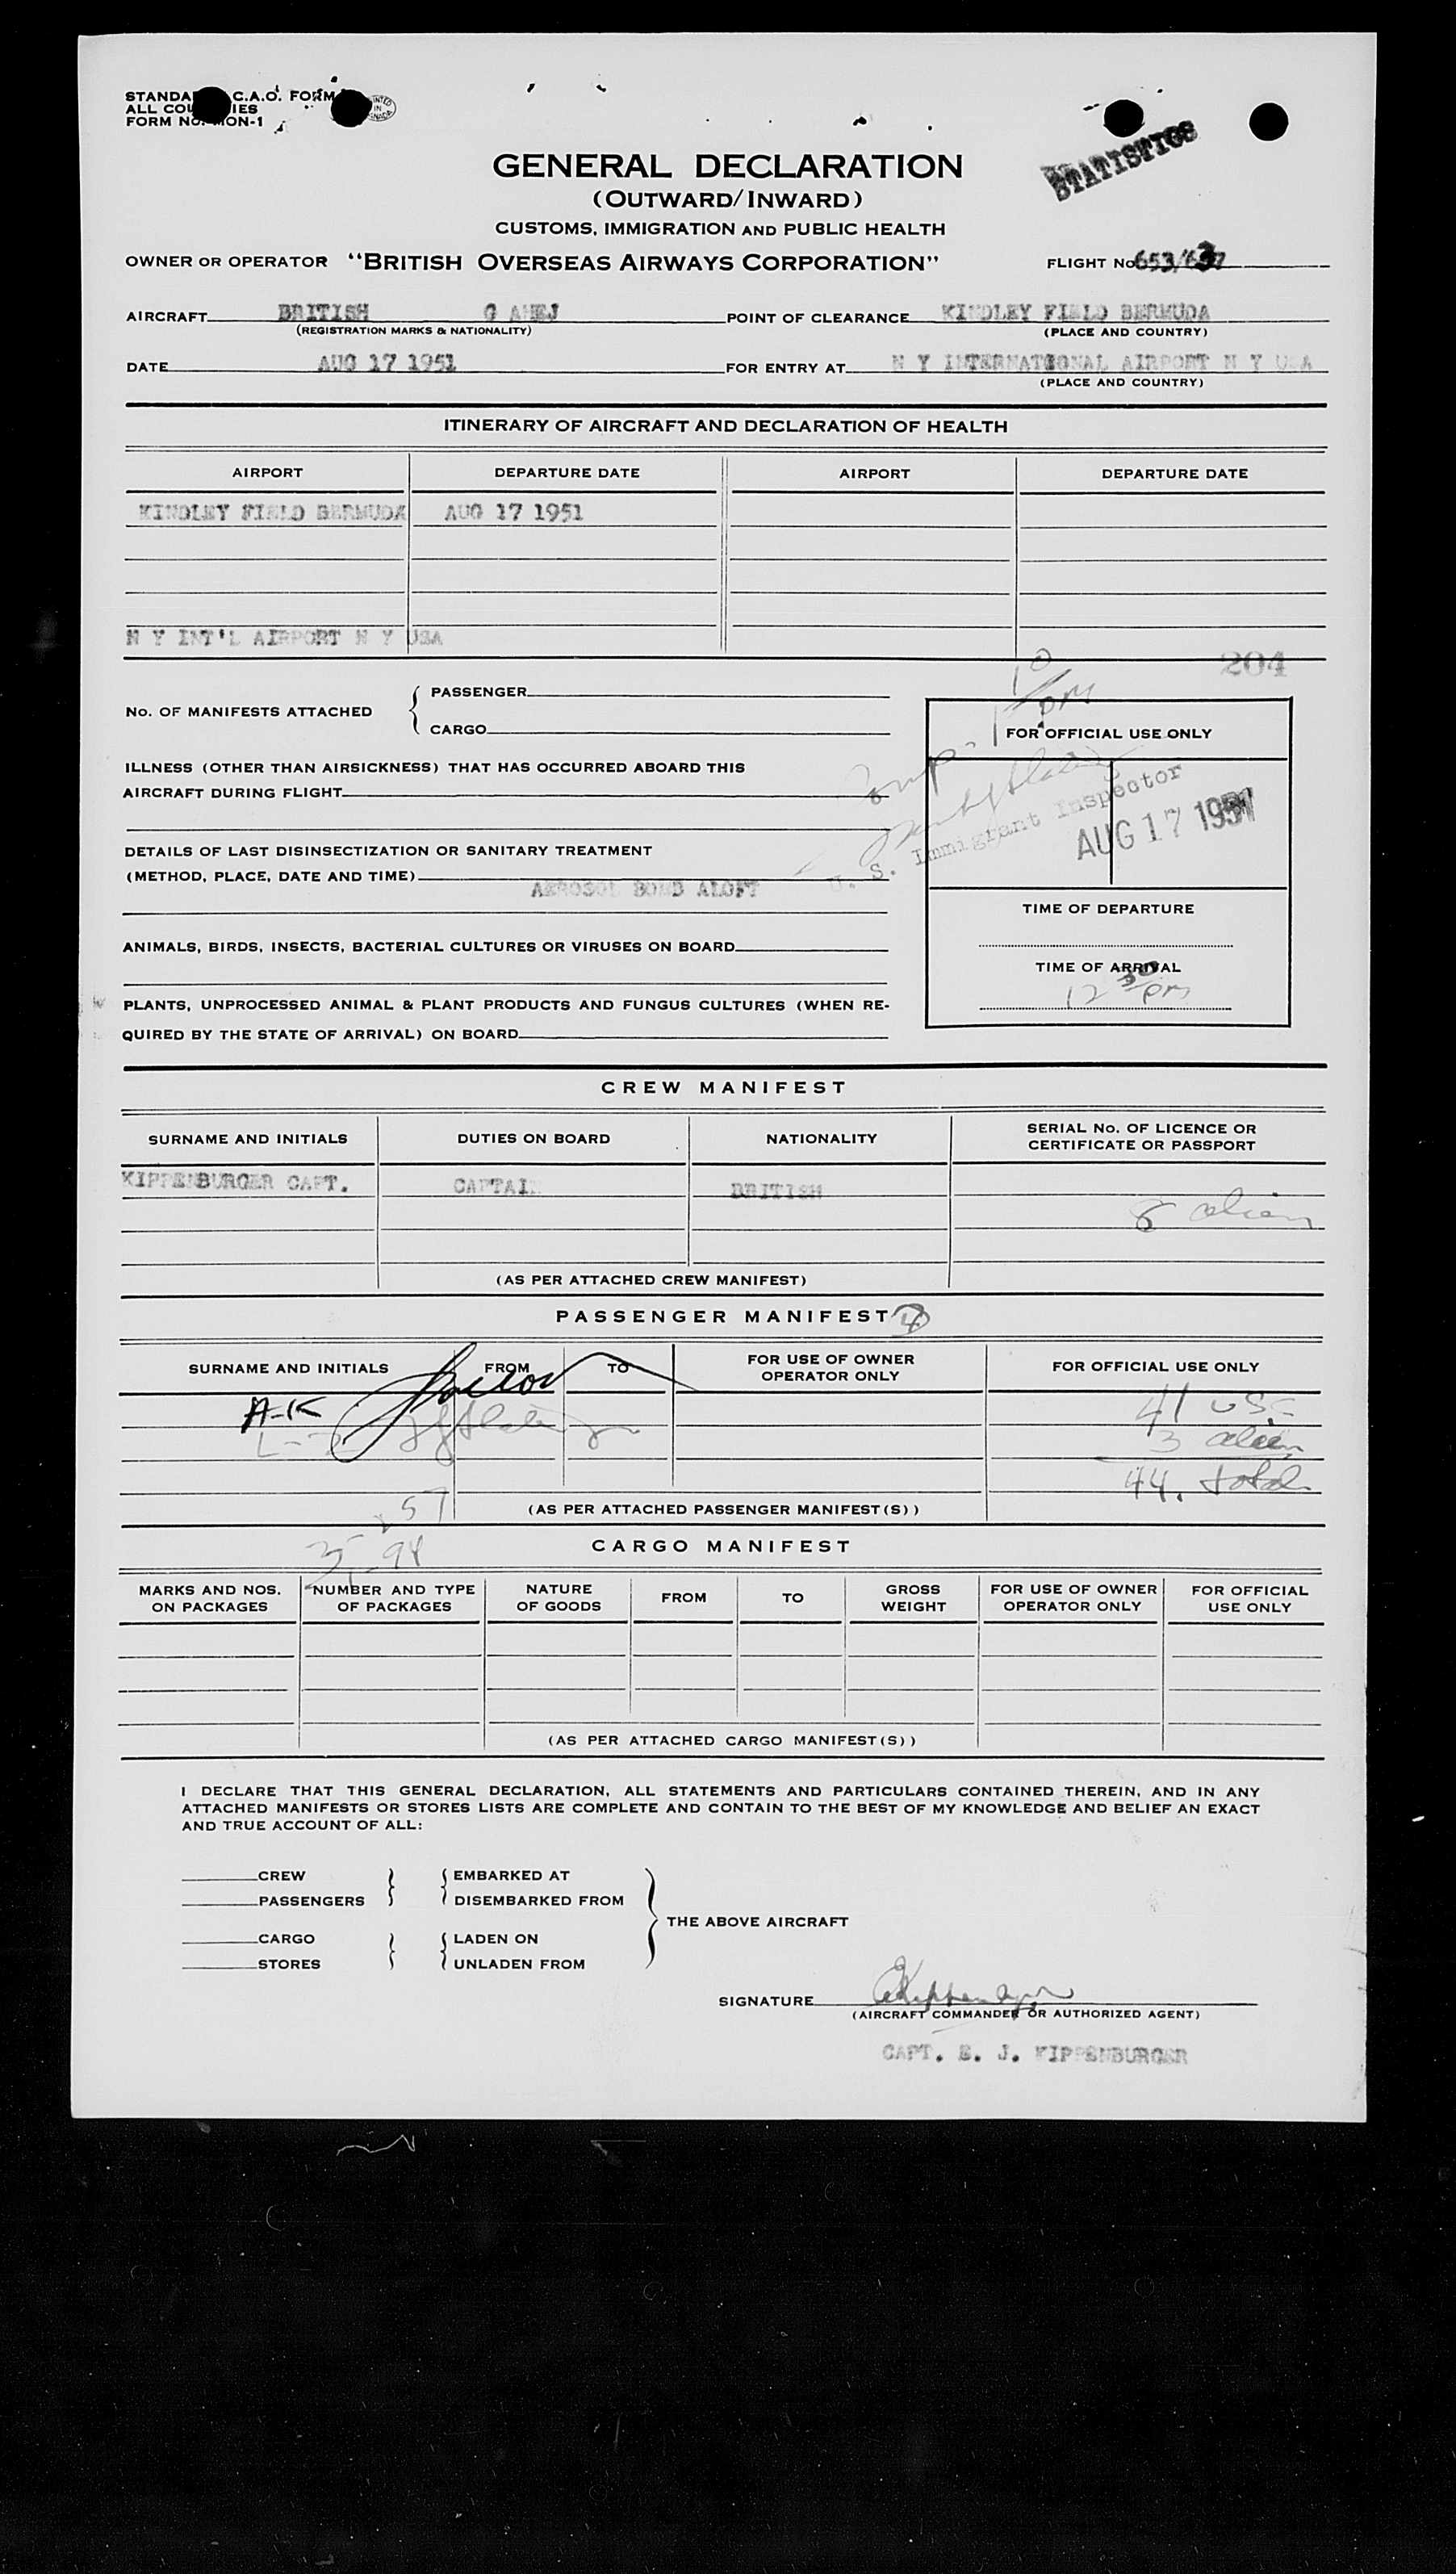 STANDA C.A.O. FORM
ALL COU IES
FORM NO. MON-1
PRINTED IN CANADA
STATISTICS
GENERAL DECLARATION
(OUTWARD/INWARD)
CUSTOMS, IMMIGRATION AND PUBLIC HEALTH
OWNER OR OPERATOR "BRITISH OVERSEAS AIRWAYS CORPORATION" FLIGHT No 653/637
AIRCRAFT BRITISH G AHEJ POINT OF CLEARANCE KINDLEY FIELD BERMUDA
(REGISTRATION MARKS & NATIONALITY) (PLACE AND COUNTRY)
DATE AUG 17 1951 FOR ENTRY AT N Y INTERNATIONAL AIRPORT N Y USA
(PLACE AND COUNTRY)
ITINERARY OF AIRCRAFT AND DECLARATION OF HEALTH
AIRPORT DEPARTURE DATE AIRPORT DEPARTURE DATE
KINDLEY FIELD BERMUDA AUG 17 1951
N Y INT'L AIRPORT N Y USA
204
No. OF MANIFESTS ATTACHED { PASSENGER
CARGO
10 pm
FOR OFFICIAL USE ONLY
ILLNESS (OTHER THAN AIRSICKNESS) THAT HAS OCCURRED ABOARD THIS
AIRCRAFT DURING FLIGHT
U. S. Immigrant Inspector
AUG 17 1951
DETAILS OF LAST DISINSECTIZATION OR SANITARY TREATMENT
(METHOD, PLACE, DATE AND TIME)
AEROSOL BOMB ALOFT
TIME OF DEPARTURE
ANIMALS, BIRDS, INSECTS, BACTERIAL CULTURES OR VIRUSES ON BOARD
TIME OF ARRIVAL
12 30 pm
PLANTS, UNPROCESSED ANIMAL & PLANT PRODUCTS AND FUNGUS CULTURES (WHEN RE-
QUIRED BY THE STATE OF ARRIVAL) ON BOARD
CREW MANIFEST
SURNAME AND INITIALS DUTIES ON BOARD NATIONALITY SERIAL No. OF LICENCE OR
CERTIFICATE OR PASSPORT
KIPPENBURGER CAPT. CAPTAIN BRITISH
8 alien
(AS PER ATTACHED CREW MANIFEST)
PASSENGER MANIFEST 4
SURNAME AND INITIALS FROM TO FOR USE OF OWNER
OPERATOR ONLY FOR OFFICIAL USE ONLY
A-K
41 USC
L-Z
3 alien
44. total
57
(AS PER ATTACHED PASSENGER MANIFEST(S))
35 94
CARGO MANIFEST
MARKS AND NOS.
ON PACKAGES NUMBER AND TYPE
OF PACKAGES NATURE
OF GOODS FROM TO GROSS
WEIGHT FOR USE OF OWNER
OPERATOR ONLY FOR OFFICIAL
USE ONLY
(AS PER ATTACHED CARGO MANIFEST(S))
I DECLARE THAT THIS GENERAL DECLARATION, ALL STATEMENTS AND PARTICULARS CONTAINED THEREIN, AND IN ANY
ATTACHED MANIFESTS OR STORES LISTS ARE COMPLETE AND CONTAIN TO THE BEST OF MY KNOWLEDGE AND BELIEF AN EXACT
AND TRUE ACCOUNT OF ALL:
CREW EMBARKED AT
PASSENGERS DISEMBARKED FROM
THE ABOVE AIRCRAFT
CARGO LADEN ON
STORES UNLADEN FROM
SIGNATURE EKippenburger
(AIRCRAFT COMMANDER OR AUTHORIZED AGENT)
CAPT. E. J. KIPPENBURGER